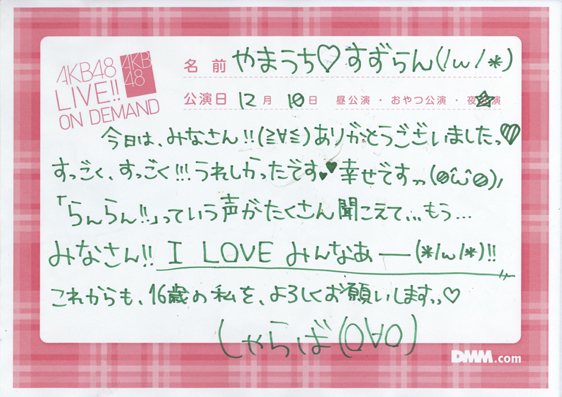 AKB48
LIVE!!
ON DEMAND
AKB
48
名前 やまうち♡すずらん(/ω/*)
公演日 12月10日 昼公演・おやつ公演・夜☆演
今日は、みなさん!!(≧∀≦)ありがとうございましたっ♥
すっごく、すっごく!!!うれしかったです♥♥幸せですっっ(@^ω^@),
「らんらん!!」っていう声がたくさん聞こえて...もう...
みなさん!! I LOVE みんなあー(*/ω/*)!!
これからも、16歳の私を、よろしくお願いしますっっ♡
しゃらば(O∀O)
DMM.com